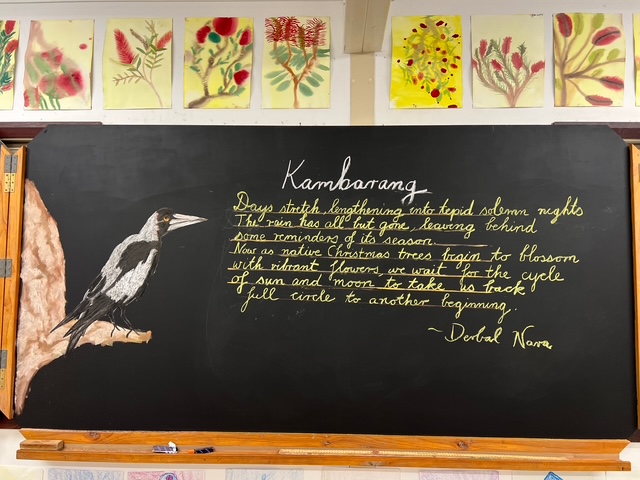 Kambarang
Days stretch lengthening into tepid solemn nights
The rain has all but gone, leaving behind
some reminders of its season
Now as native Christmas trees begin to blossom
with vibrant flowers, we wait for the cycle
of sun and moon to take us back
full circle to another beginning.
~Derbal Nara